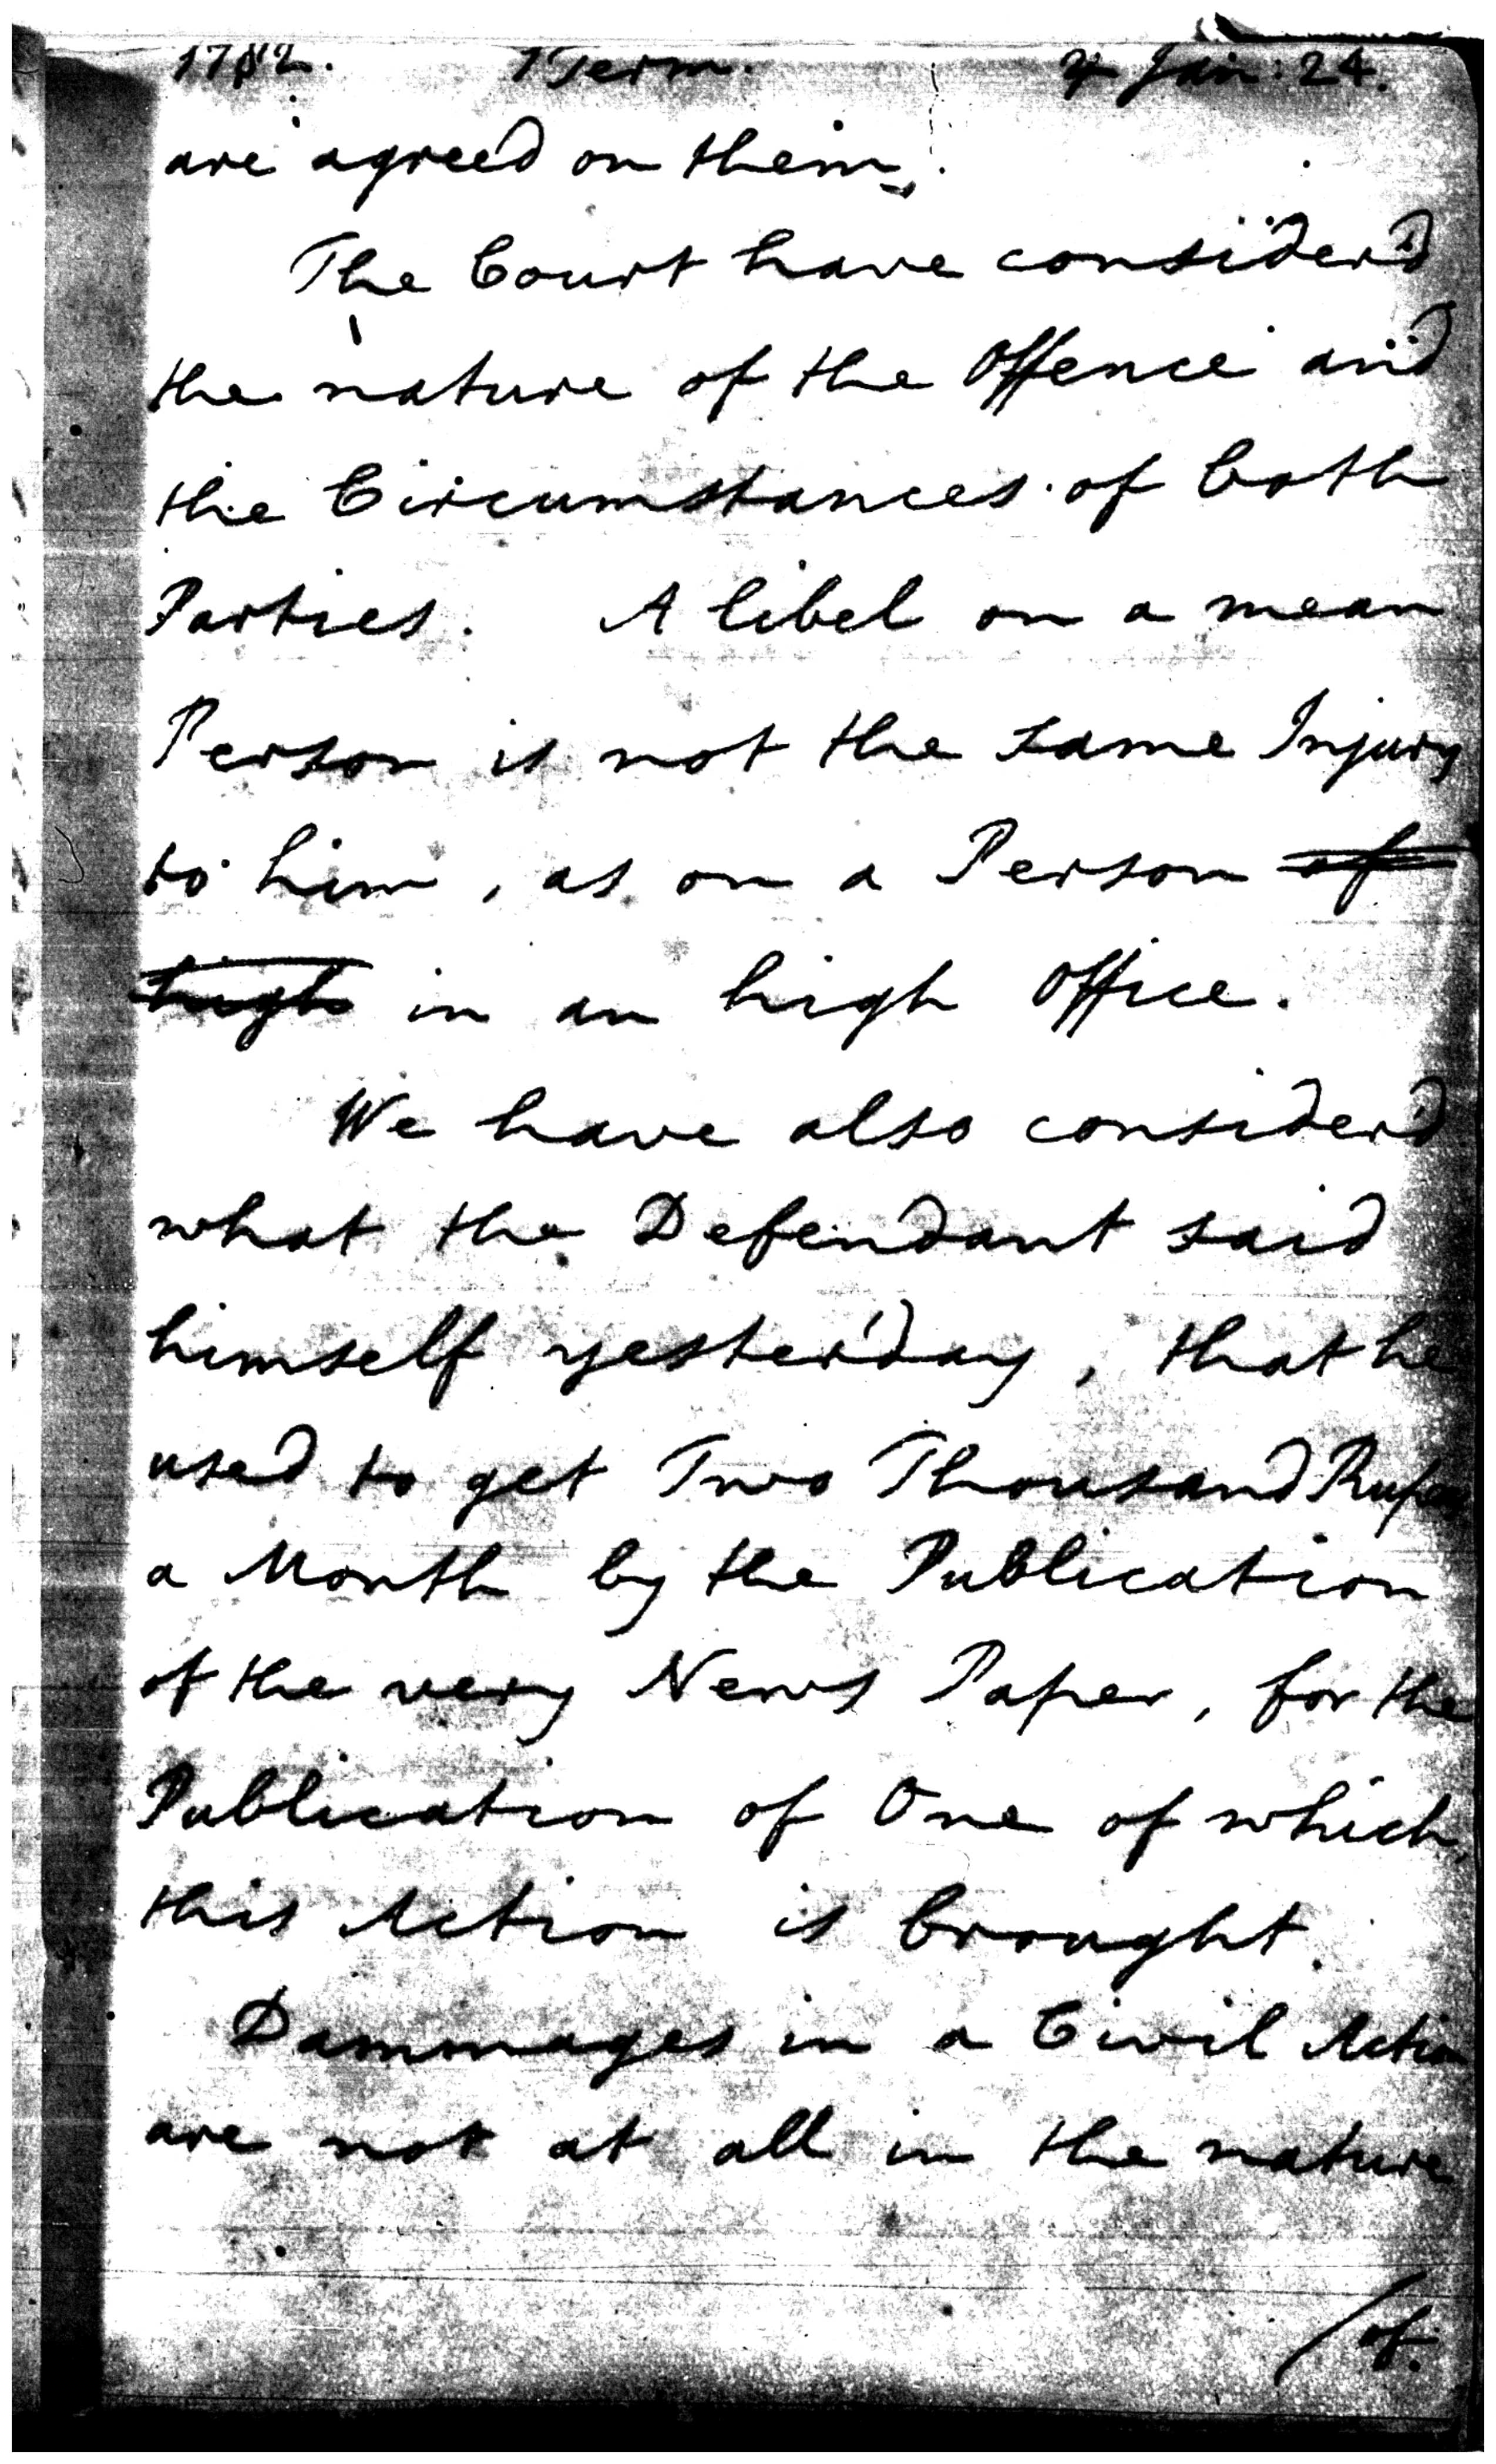 1782. 1 Term. ♃ Jan: 24.
are agreed on them.
The Court have consider'd
the nature of the Offence and
the Circumstances of both
Parties. A libel on a mean
Person is not the same Injury
to him, as on a Person of
high in an high Office.
We have also consider'd
what the Defendant said
himself yesterday, that he
used to get Two Thousand Rupees
a Month by the Publication
of the very News Paper, for the
Publication of One of which,
this Action is brought.
Dammages in a Civil Action
are not at all in the nature
/of.